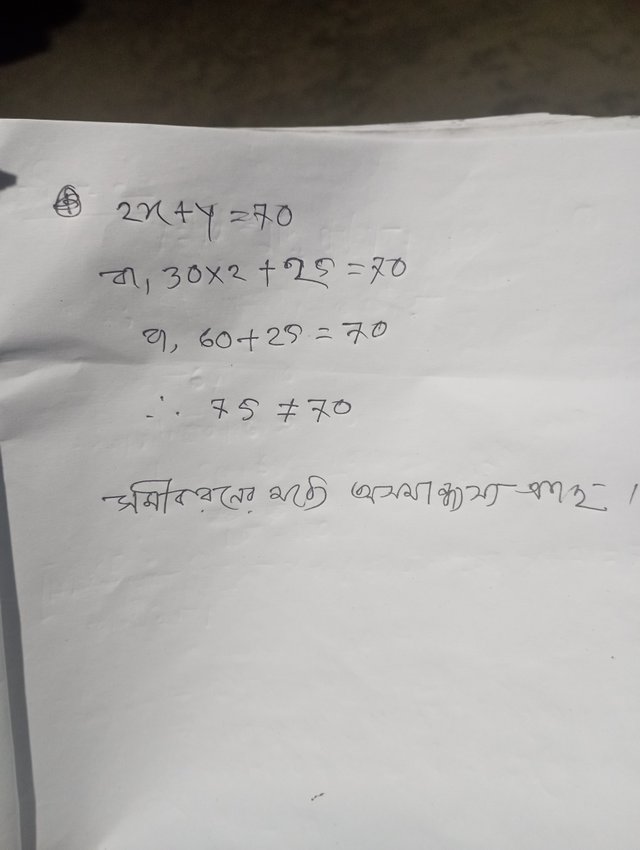 2x+y=70
বা, 30×2+25=70
বা, 60+25=70
∴ 75≠70
সমিকরনের মধ্যে অসমাঞ্জস্য আছে।